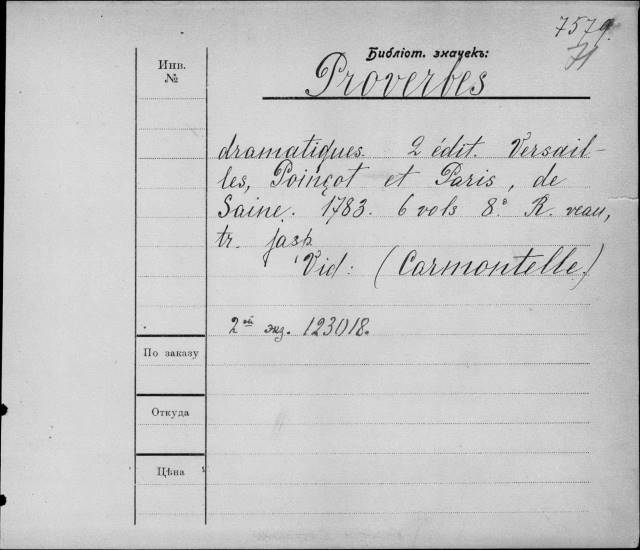 7579.
71
Библіот. значекъ:
Инв.
№
Proverbes
dramatiques. 2 édit. Versail-
les, Poinçot et Paris, de
Saine. 1783. 6 vols 8° R. veau,
tr. jasp.
Vid: (Carmontelle)
2ой экз. 123018.
По заказу
Откуда
Цѣна